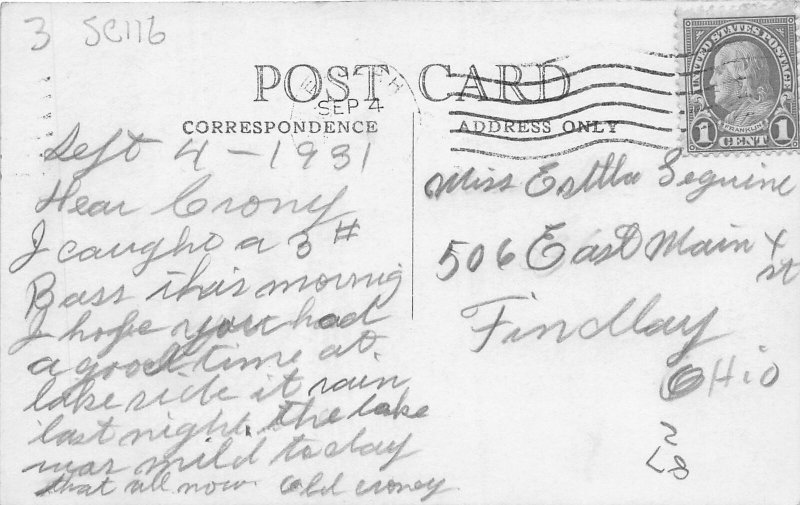 3 SC116
POST CARD
SEP 4
CORRESPONDENCE
ADDRESS ONLY
UNITED STATES POSTAGE
FRANKLIN
1 CENT 1
Sept 4 - 1931
Dear Crony
I caught a 3 #
Bass this mornig
I hope you had
a good time at
lake side it rain
last night. the lake
was mild today
that all now Old croney
Miss Estlla Seguine
506 East Main x
st
Findlay
OHio
2
L8